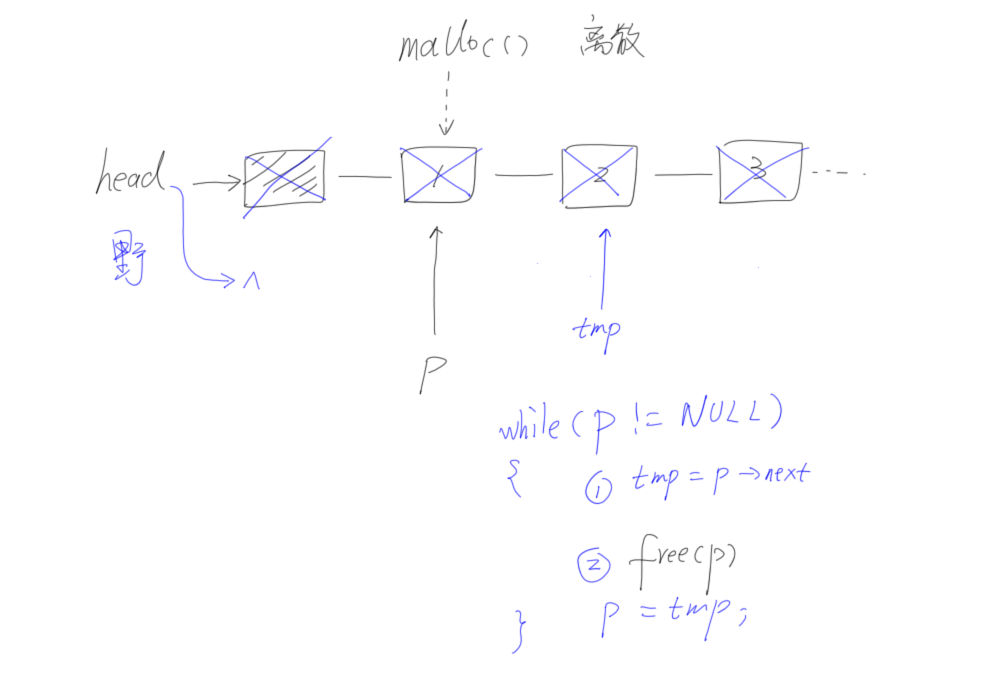 malloc() 离散
head 1 2 3 ....
野 ∧
tmp
p
while(p != NULL)
{ ① tmp = p→next
② free(p)
p = tmp;
}